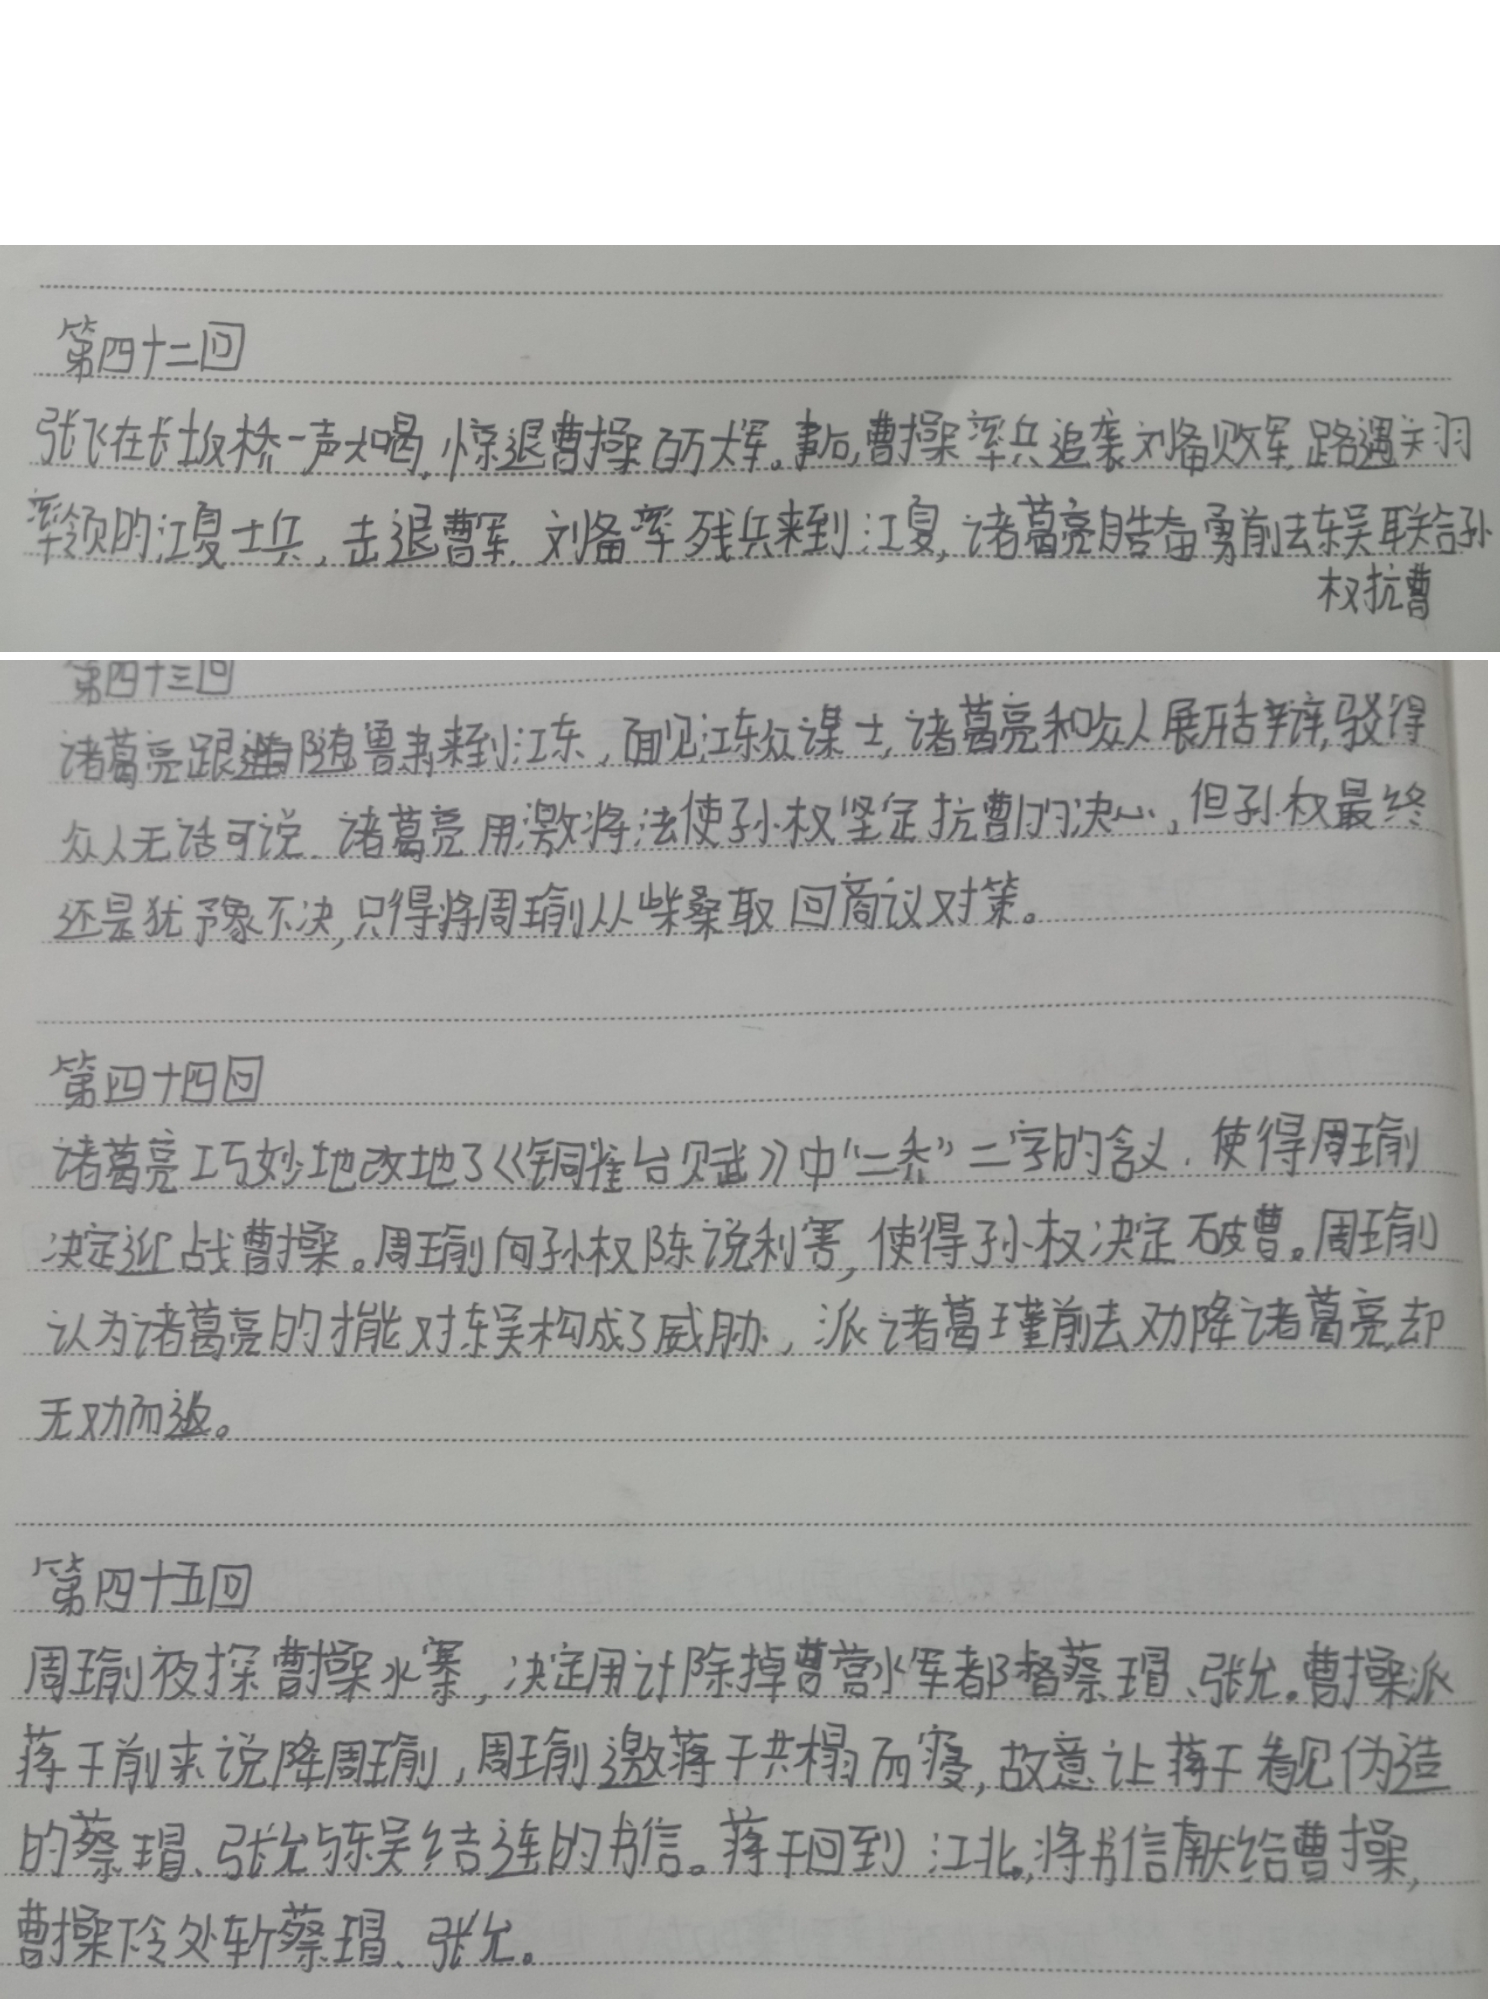 第四十二回
张飞在长坂桥一声大喝,惊退曹操百万大军。事后,曹操率兵追袭刘备败军,路遇关羽
率领的江夏士兵,击退曹军.刘备率残兵来到江夏,诸葛亮自告奋勇前去东吴联合孙
权抗曹
第四十三回
诸葛亮跟随鲁肃来到江东,面见江东众谋士,诸葛亮和众人展开舌辩,驳得
众人无话可说.诸葛亮用激将法使孙权坚定抗曹的决心,但孙权最终
还是犹豫不决,只得将周瑜从柴桑取回商议对策。
第四十四回
诸葛亮巧妙地改地了《铜雀台赋》中“二乔”二字的含义,使得周瑜
决定迎战曹操。周瑜向孙权陈说利害,使得孙权决定破曹。周瑜
认为诸葛亮的才能对东吴构成了威胁,派诸葛瑾前去劝降诸葛亮,却
无功而返。
第四十五回
周瑜夜探曹操水寨,决定用计除掉曹营水军都督蔡瑁、张允。曹操派
蒋干前来说降周瑜,周瑜邀蒋干共榻而寝,故意让蒋干看见伪造
的蔡瑁、张允与东吴结连的书信。蒋干回到江北,将书信献给曹操,
曹操下令处斩蔡瑁、张允。